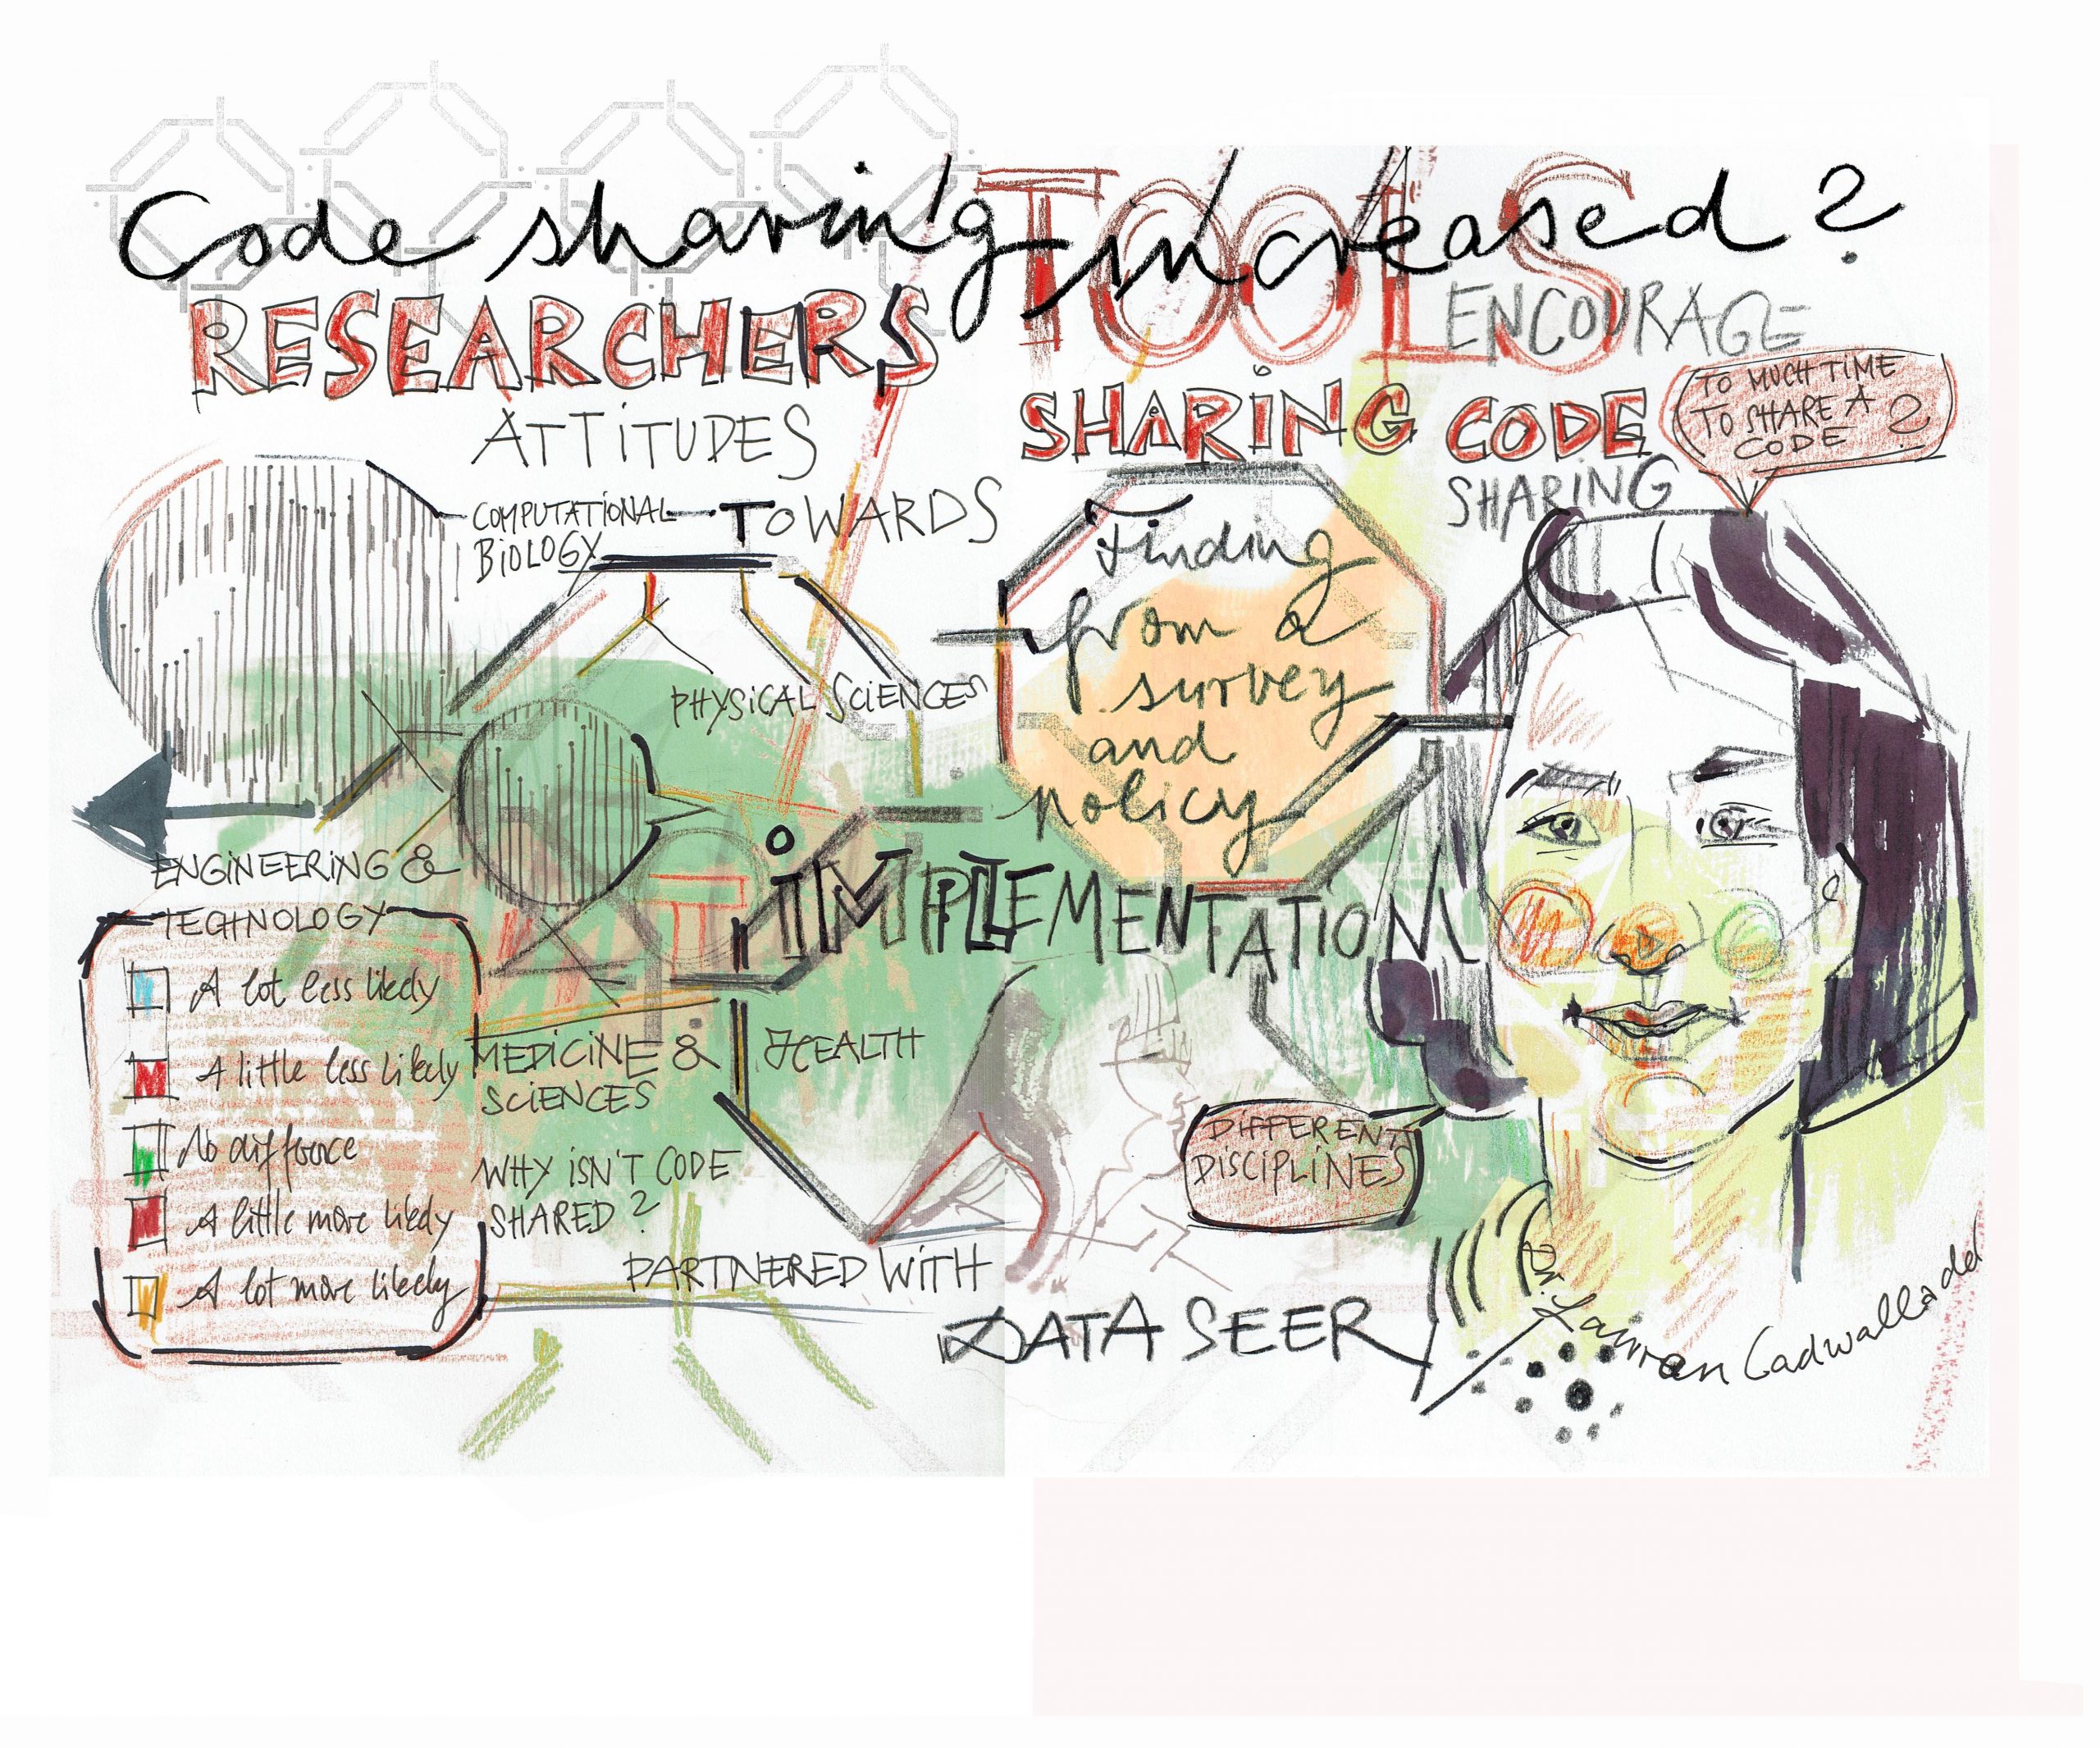 Code sharing increased?
TOOLS
RESEARCHERS
ENCOURAGE
ATTITUDES
SHARING CODE
SHARING
TO MUCH TIME
TO SHARE A
CODE ?
COMPUTATIONAL
BIOLOGY
TOWARDS
Finding
from a
survey
and
policy
PHYSICAL SCIENCES
ENGINEERING &
TECHNOLOGY
IMPLEMENTATION
A lot less likely
A little less likely
No difference
A little more likely
A lot more likely
MEDICINE & HEALTH
SCIENCES
WHY ISN'T CODE
SHARED?
DIFFERENT
DISCIPLINES
PARTNERED WITH
DATA SEER
Dr. Lauren Cadwallader